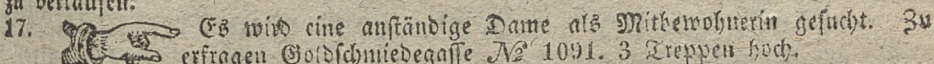 zu verkaufen.
17. Es wird eine anständige Dame als Mitbewohnerin gesucht. Zu
erfragen Goldschmiedegasse № 1091. 3 Treppen hoch.